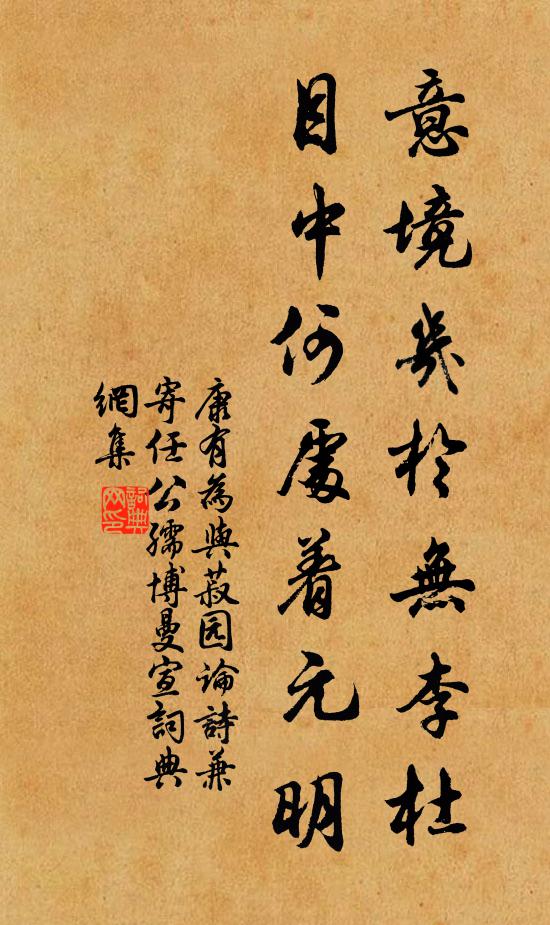 意境幾於無李杜
目中何處着元明
康有為與菽园論詩兼
寄任公孺博曼宣詞典
網集
詞典網印